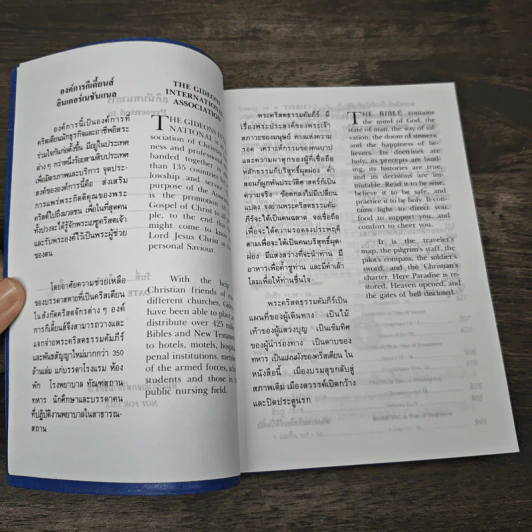 องค์การกีเดี้ยนส์
อินเตอร์เนชันแนล
องค์การกีเดี้ยนส์นี้เป็นองค์การที่
ร่วมใจกันก่อตั้งขึ้น มีอยู่ในประเทศ
ต่าง ๆ กว่าหนึ่งร้อยสามสิบประเทศ
เพื่อมิตรภาพและบริการ จุดประ-
สงค์ขององค์การนี้คือ ส่งเสริม
การแพร่พระกิตติคุณของพระ
คริสต์ไปถึงมวลชน เพื่อในที่สุดคน
และรับพระองค์ไว้เป็นพระผู้ช่วย
ของตน
โดยอาศัยความช่วยเหลือ
ของบรรดาสหายที่เป็นคริสเตียน
ในสังกัดคริสตจักรต่าง ๆ องค์
การกีเดี้ยนส์จึงสามารถวางและ
แจกจ่ายพระคริสตธรรมคัมภีร์
และพันธสัญญาใหม่มากกว่า 350
ล้านเล่ม แก่บรรดาโรงแรม ห้อง
พัก โรงพยาบาล ทัณฑสถาน
ทหาร นักศึกษาและบรรดาคน
ที่ปฏิบัติงานพยาบาลในสาธารณ-
สถาน
THE GIDEONS
INTERNATIONAL
ASSOCIATION
THE GIDEONS
NATIONAL is
sociation of Chris
ness and professional
handed together
than 135 countries
lowship and service
purpose of the As
is the promotion
Gospel of Christ to
ple, to the end
might come to know
Lord Jesus Christ as
personal Saviour.
With the help
Christian friends of
different churches, Gid
have been able to place
distribute over 425 mil
Bibles and New Testam
to hotels, motels, hosp
penal institutions, mem
of the armed forces,
students and those in
public nursing field.
พระคริสตธรรมคัมภีร์ มี
เรื่องพระประสงค์ของพระเจ้า
สภาวะของมนุษย์ ทางแห่งความ
รอด เคราะห์กรรมของคนบาป
และความผาสุกของผู้ที่เชื่อถือ
หลักธรรมก็บริสุทธิ์ผุดผ่อง คำ
สอนก็ผูกพันประวัติศาสตร์ก็เป็น
ความจริง ข้อตกลงไม่มีเปลี่ยน
แปลง จงอ่านพระคริสตธรรมคัม-
ภีร์จะได้เป็นคนฉลาด จงเชื่อถือ
เพื่อจะได้ความรอดจงประพฤติ
ตามเพื่อจะได้เป็นคนบริสุทธิ์ผุด
ผ่อง มีแสงสว่างที่จะนำท่าน มี
อาหารเพื่อค้ำชูท่าน และมีคำเล้า
โลมเพื่อให้ท่านชื่นใจ
พระคริสตธรรมคัมภีร์เป็น
แผนที่ของผู้เดินทาง เป็นไม้
เท้าของผู้แสวงบุญ เป็นเข็มทิศ
ของผู้นำร่องทาง เป็นดาบของ
ทหาร เป็นแผนผังของคริสเตียน ใน
หนังสือนี้ เมืองบรมสุขกลับสู่
สภาพเดิม เมืองสวรรค์เปิดกว้าง
และปิดประตูนรก
THE BIBLE contains
the mind of God, the
state of man, the way of sal-
vation, the doom of sinners,
and the happiness of be-
lievers. Its doctrines are
holy, its precepts are bind-
ing, its histories are true,
and its decisions are im-
mutable. Read it to be wise,
believe it to be safe, and
practice it to be holy. It con-
tains light to direct you,
food to support you, and
comfort to cheer you.
It is the traveler's
map, the pilgrim's staff, the
pilot's compass, the soldier's
sword, and the Christian's
charter. Here Paradise is re-
stored, Heaven opened, and
the gates of hell disclosed.